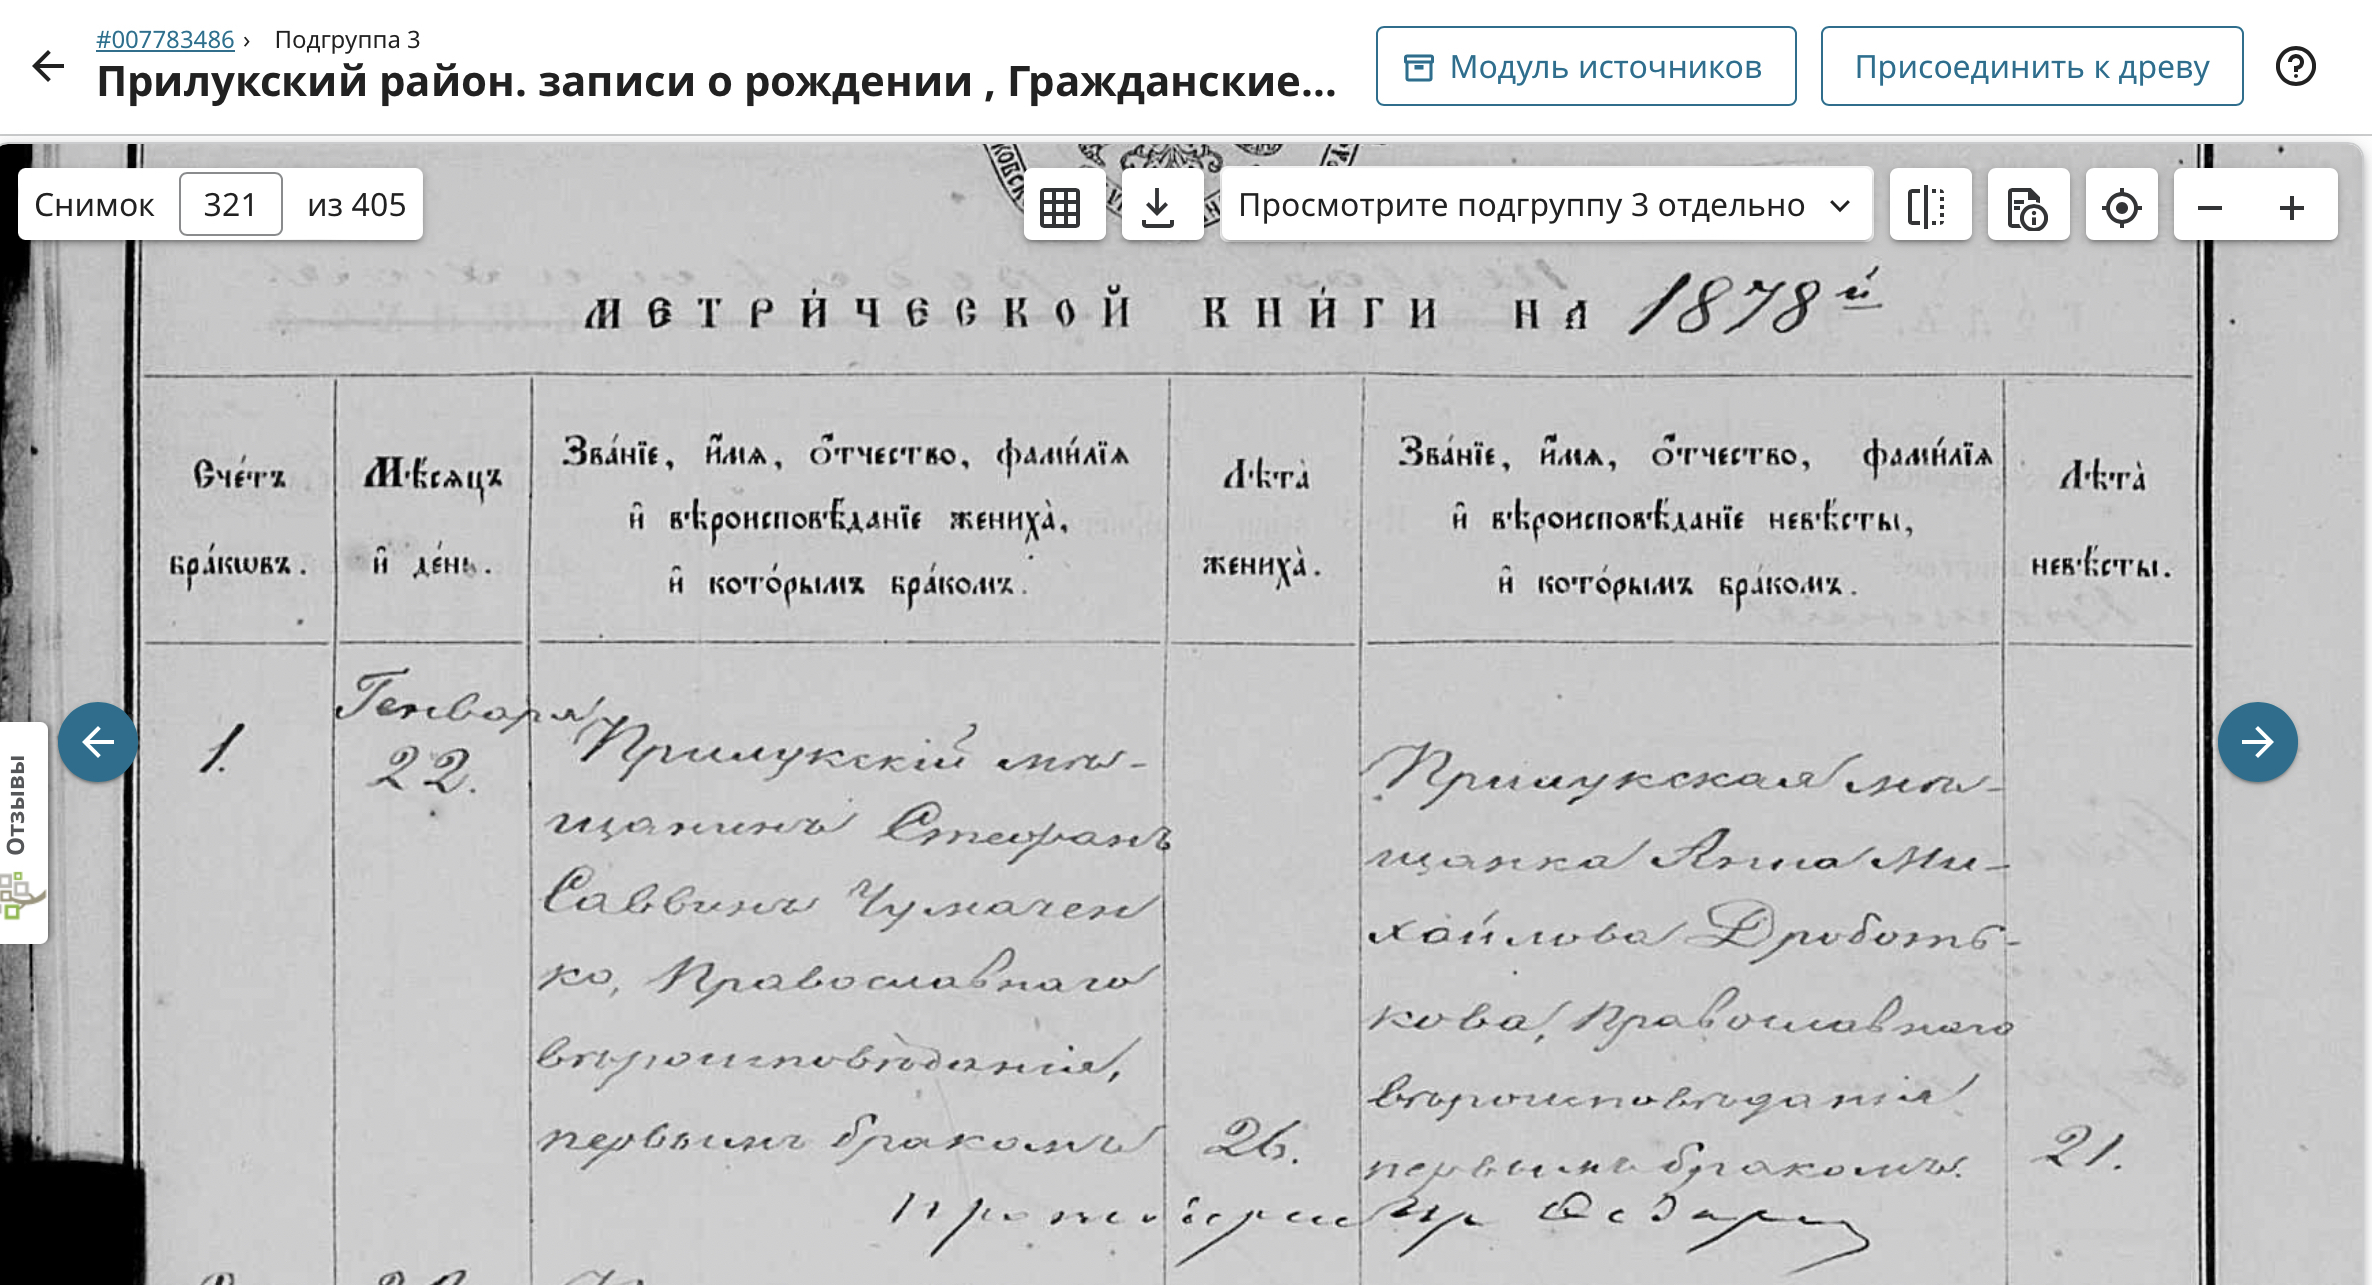 #007783486 › Подгруппа 3
Прилукский район. записи о рождении , Гражданские...
Модуль источников
Присоединить к древу
Снимок 321 из 405
Просмотрите подгруппу 3 отдельно
МЕТРИ́ЧЕСКОЙ КНИ́ГИ НА 1878й
Сче́тъ бра́кωвъ.
Мѣ́сѧцъ и҆ де́нь.
Зва́нїе, и҆́мѧ, ѻ҆́тчество, фами́лїѧ
и҆ вѣроисповѣ́данїе жениха̀,
и҆ кото́рымъ бра́комъ.
Лѣта̀ жениха̀.
Зва́нїе, и҆́мѧ, ѻ҆́тчество, фами́лїѧ
и҆ вѣроисповѣ́данїе невѣ́сты,
и҆ кото́рымъ бра́комъ.
Лѣта̀ невѣ́сты.
1.
Генваря
22.
Прилукскій мѣ-
щанинъ Стефанъ
Саввинъ Чумачен
ко, Православнаго
вѣроисповѣданія,
первымъ бракомъ
26.
Прилукская мѣ-
щанка Анна Ми-
хайлова Дроботь-
кова, Православнаго
вѣроисповѣданія
первымъ бракомъ.
21.
Протоіерей
Отзывы